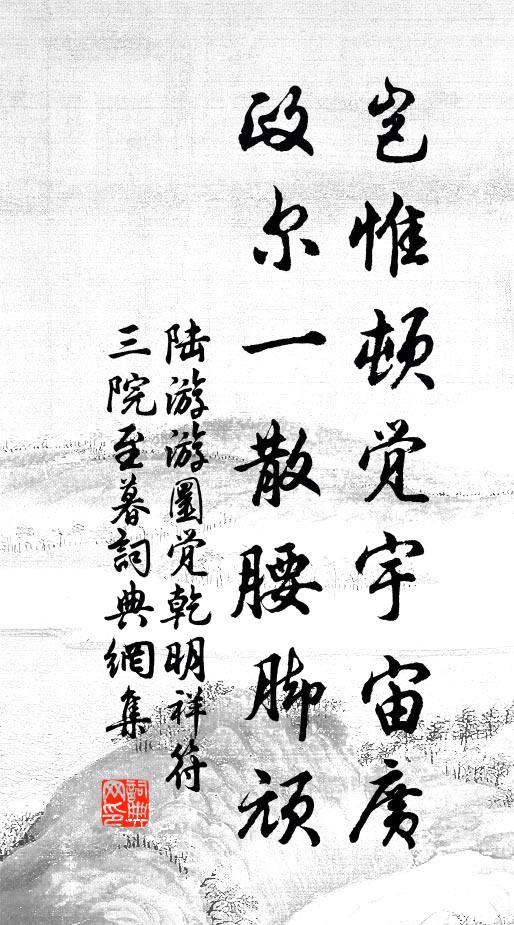 岂惟顿觉宇宙广
政尔一散腰脚顽
陆游游圜觉乾明祥符
三院至暮詞典網集
詞典网印